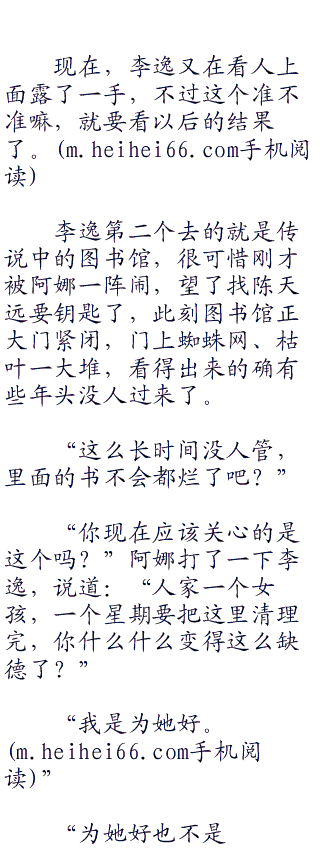 现在，李逸又在看人上
面露了一手，不过这个准不
准嘛，就要看以后的结果
了。(m.heihei66.com手机阅
读)
李逸第二个去的就是传
说中的图书馆，很可惜刚才
被阿娜一阵闹，望了找陈天
远要钥匙了，此刻图书馆正
大门紧闭，门上蜘蛛网、枯
叶一大堆，看得出来的确有
些年头没人过来了。
“这么长时间没人管，
里面的书不会都烂了吧？”
“你现在应该关心的是
这个吗？”阿娜打了一下李
逸，说道：“人家一个女
孩，一个星期要把这里清理
完，你什么什么变得这么缺
德了？”
“我是为她好。
(m.heihei66.com手机阅
读)”
“为她好也不是